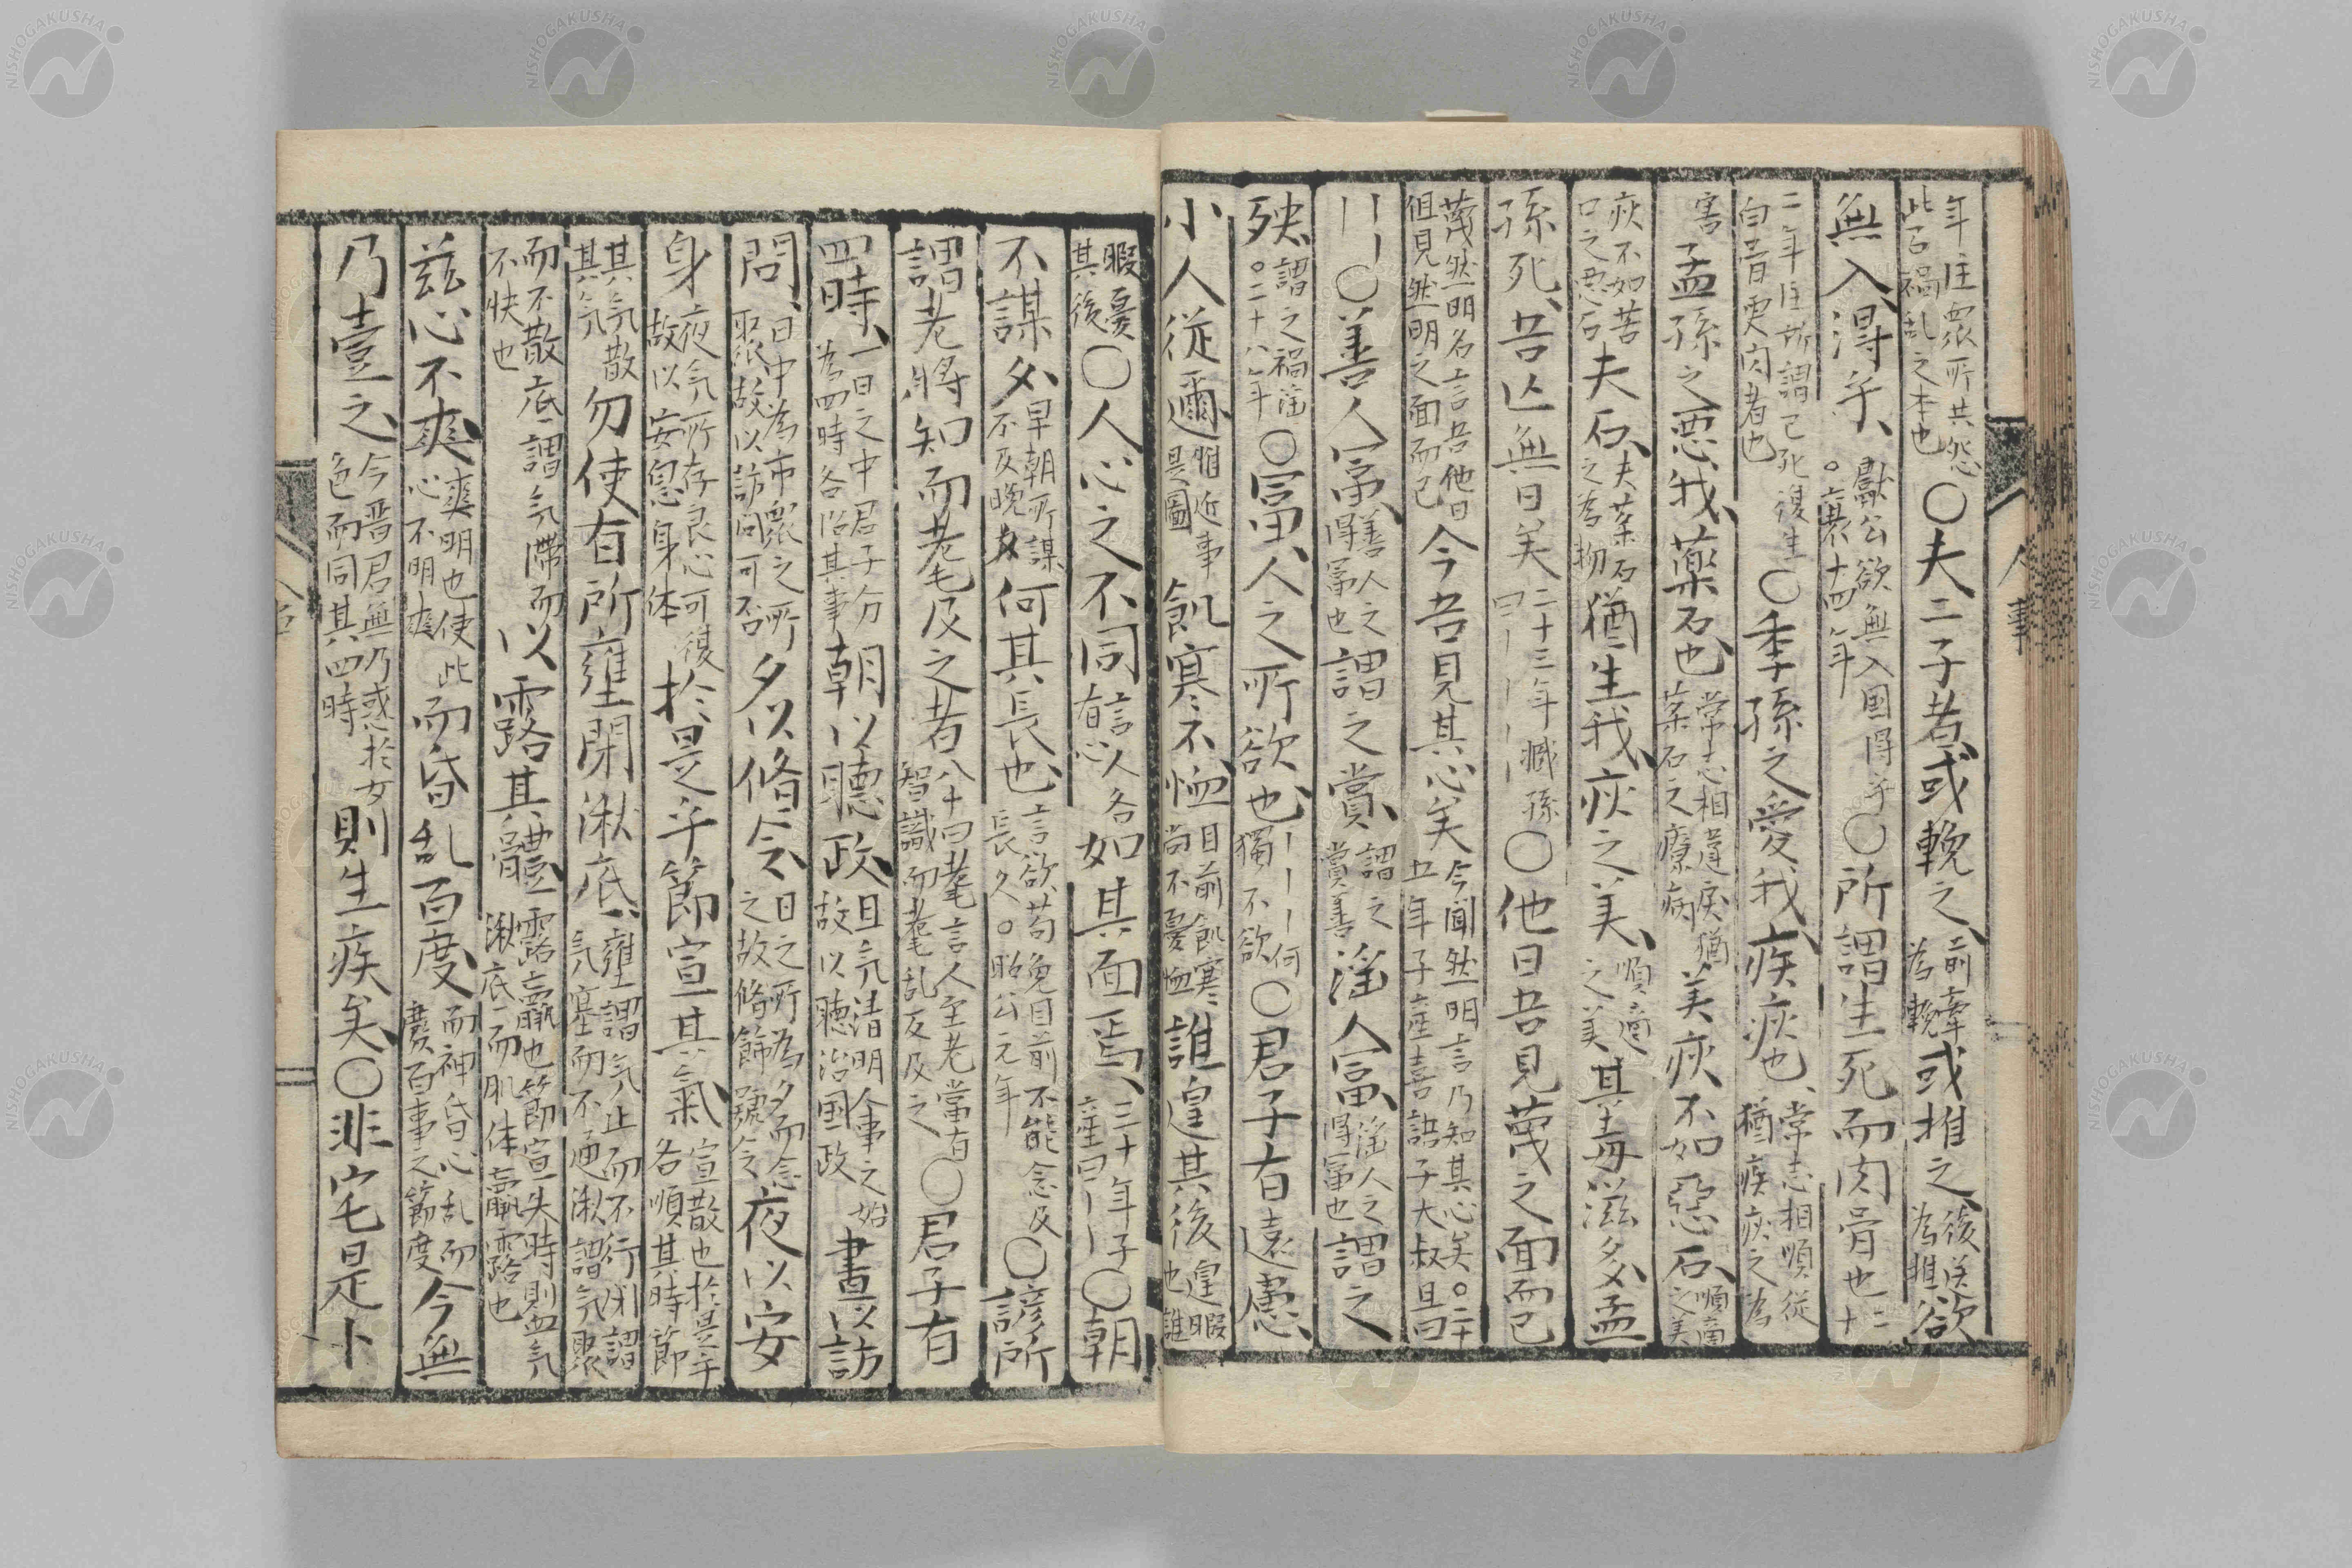 年注衆所共怨
此言禍乱之本也
〇夫二子者或輓之
前牽
為輓
或推之
後送
為推
欲
無入得乎
献公欲無入国得乎
。襄十四年
〇所謂生死而肉骨也
二
十
二年注所謂已死復生
白骨更肉者也
〇季孫之愛我疾疢也
常志相順従
猶疾疢之為
害
孟孫之悪我薬石也
常志相違戻猶
薬石之療病
美疢不如惡石
順適
之美
疢不如苦
口之悪石
夫石
夫薬石
之為物
猶生我疢之美
順適
之美
其毒滋多孟
孫死吾亡無日矣
二十三年臧孫
曰丨丨丨
〇他日吾見蔑之面而已
蔑然明名言吾他日
但見然明之面而已
今吾見其心矣
今聞然明言乃知其心矣。二十
五年子産喜語子大叔且曰
丨丨丨〇善人冨
善人之
得冨也
謂之賞
謂之
賞善
淫人冨
淫人之
得冨也
謂之
殃
謂之禍淫
。二十八年
〇冨人之所欲也
丨丨丨何
獨不欲
〇君子有遠慮
小人從邇
邇近事
是圖
飢寒不恤
目前飢寒
尚不憂恤
誰遑其後
遑暇
也誰
暇憂
其後
〇人心之不同
言人各
有心
如其面焉
三十年子
産曰丨
〇朝
不謀夕
早朝所謀
不及晩夕
何其長也
言欲苟免目前不能念及
長久。昭公元年
〇諺所
謂老將知而耄及之者
八十曰耄言人至老當有
智識而耄乱反及之
〇君子有
四時
一日之中君子分
為四時各治其事
朝以聽政
旦氣清明人事之始
故以聽治国政
晝以訪
問
日中為市衆之所
聚故以訪問可否
夕以脩令
日之所為夕而念
之故脩飾號令
夜以安
身
夜氣所存良心可復
故以安息身体
於是乎節宣其氣
宣散也於是乎
各順其時節
其気散
其気
勿使有所壅閉湫底
壅謂気止而不行閉謂
気塞而不通湫謂気聚
而不散底謂気滯而
不快也
以露其體
露羸也節宣失時則血気
湫底而肌体羸露也
茲心不爽
爽明也使此
心不明爽
而昏乱百度
而神昏心乱而
廢百事之節度
今無
乃壹之
今晋君無乃惑於女
色而同其四時
則生疾矣〇非宅是卜
人事